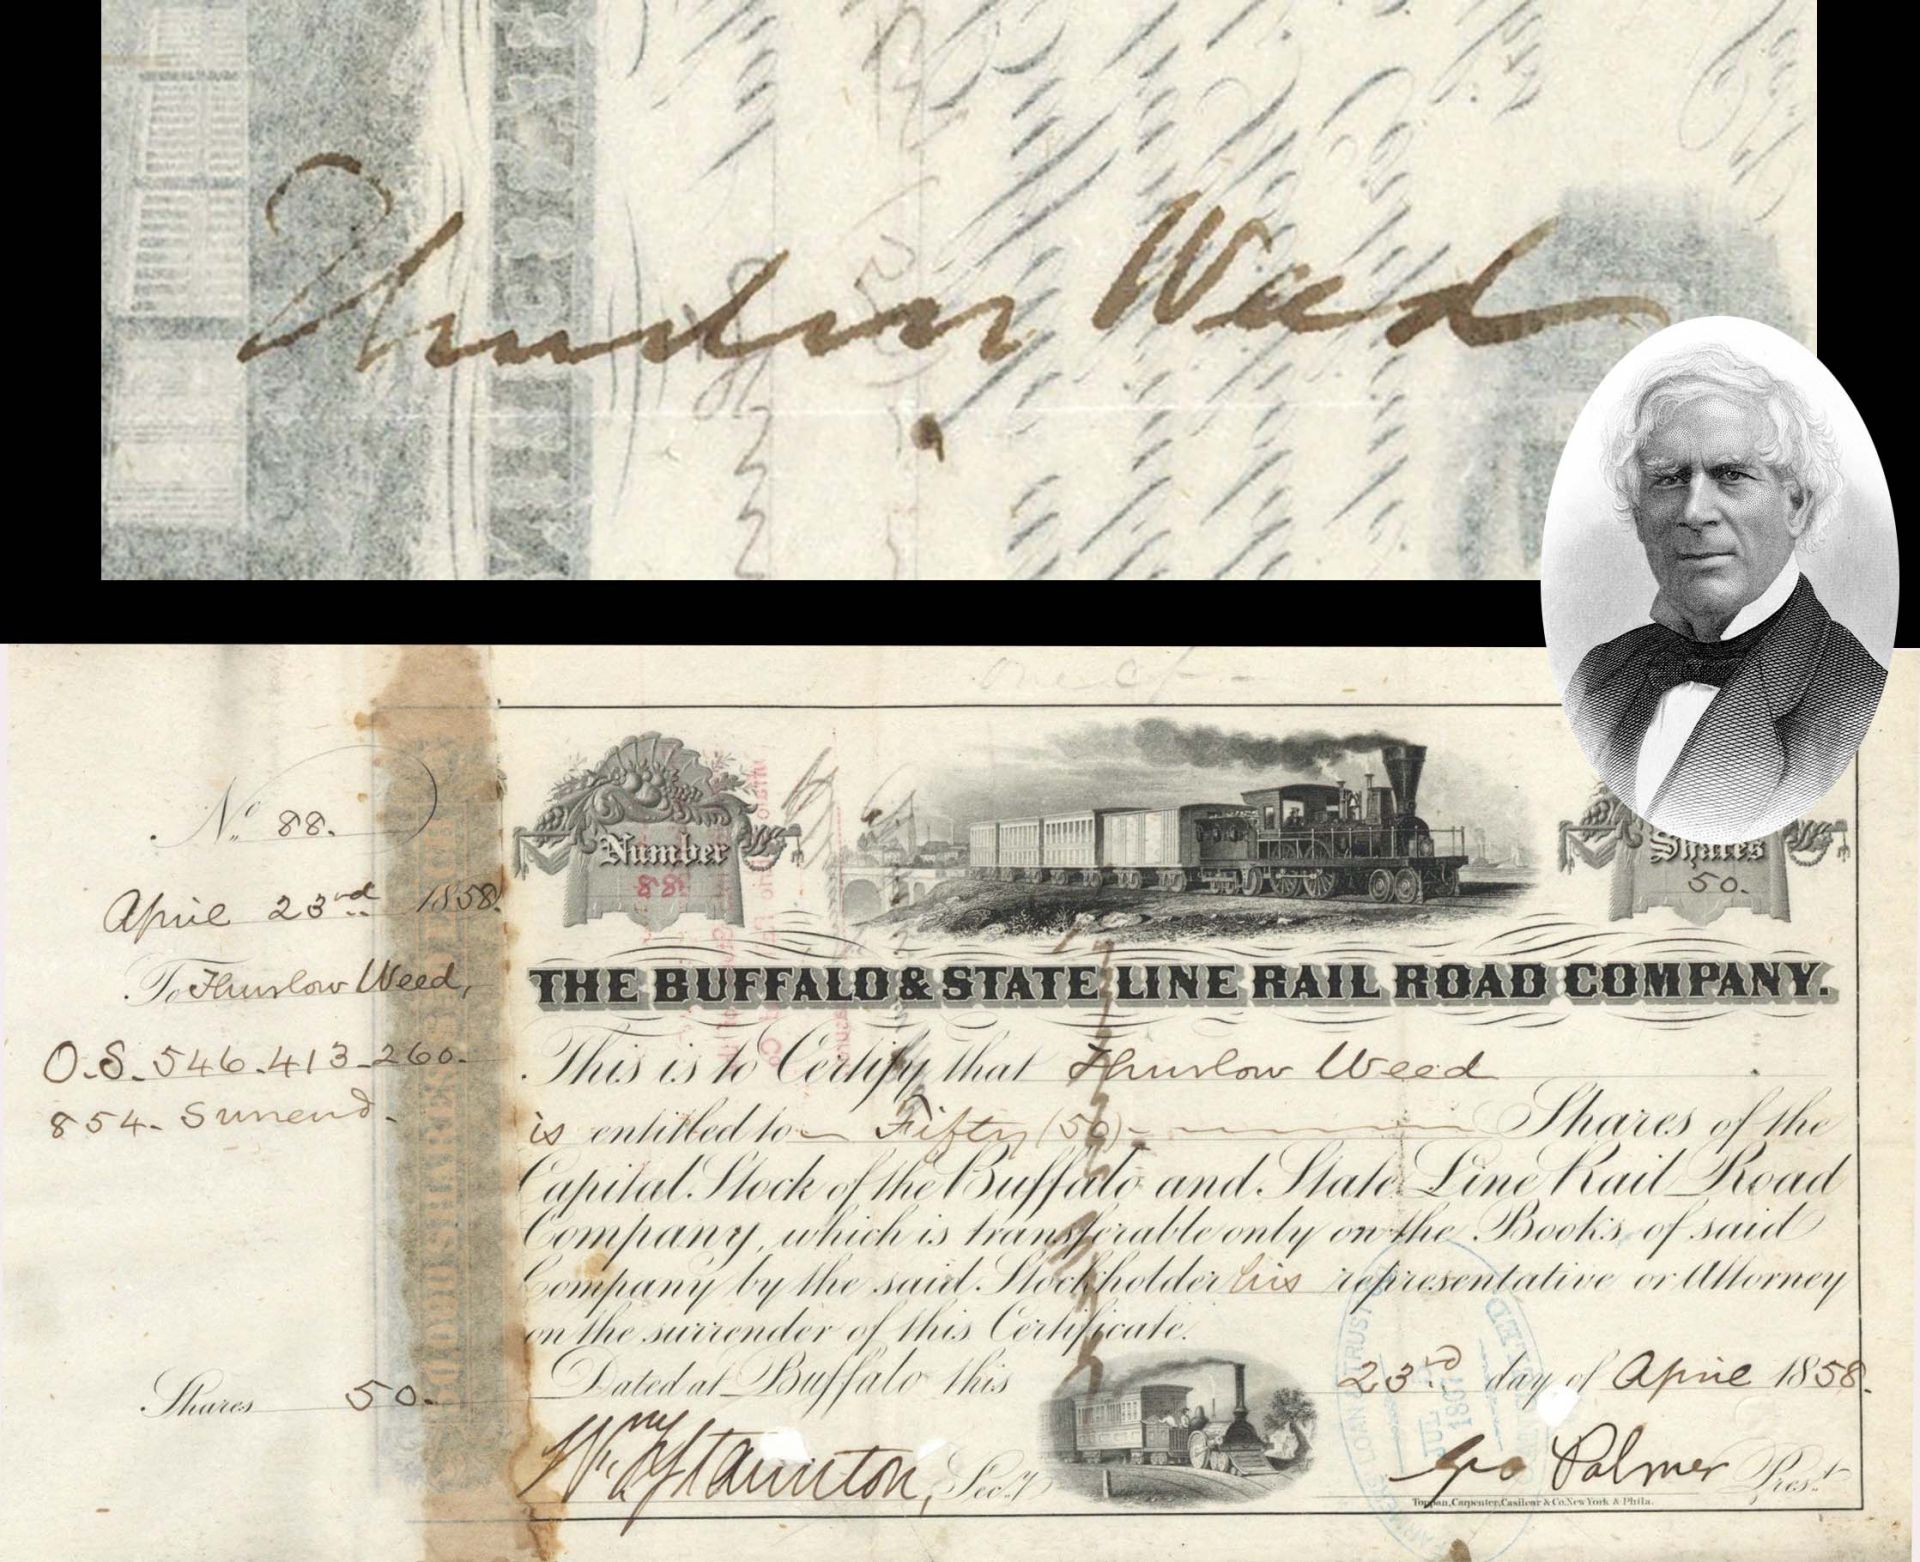 Thurlow Weed
No. 88.
April 23rd 1858.
To Thurlow Weed,
O.S. 546.413-260.
854.
Shares 50.
Number
88
Shares
50.
THE BUFFALO & STATE LINE RAIL ROAD COMPANY.
This is to Certify that Thurlow Weed
is entitled to Fifty (50) Shares of the
Capital Stock of the Buffalo and State Line Rail Road
Company, which is transferable only on the Books of said
Company by the said Stockholder his representative or Attorney
on the surrender of this Certificate.
Dated at Buffalo this 23rd day of April 1858.
Secy
Geo Palmer Prest
Toppan, Carpenter, Casilear & Co. New York & Phila.